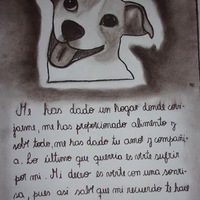 Me has dado un hogar donde cobi-
jarme, me has proporcionado alimento y
sobre todo, me has dado tu amor y compañi-
a. Lo último que querría es verte sufrir
por mi. Mi deseo es verte con una sonri-
sa, pues asi sabré que mi recuerdo te hace